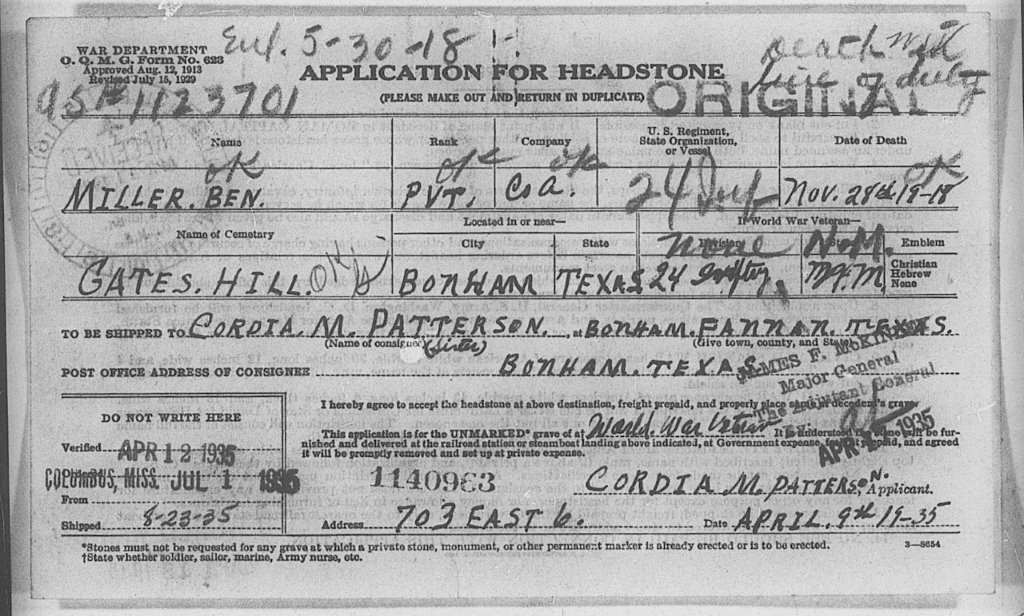 WAR DEPARTMENT
O. Q. M. G. Form No. 623
Approved Aug. 12, 1913
Revised July 15, 1929
Enl. 5-30-18
APPLICATION FOR HEADSTONE
(PLEASE MAKE OUT AND RETURN IN DUPLICATE)
Death
line of duty
ORIGINAL
1123701
Name
Rank
Company
U. S. Regiment, State Organization, or Vessel
Date of Death
OK OK OK OK
MILLER. BEN. PVT. Co A. 24 Inf Nov. 28th 19-18
Name of Cemetary
Located in or near—
If World War Veteran—
City State Division State Emblem
None N.M.
GATES. HILL. OK BONHAM TEXAS 24 N.M.
Christian
Hebrew
None
TO BE SHIPPED TO CORDIA. M. PATTERSON. at BONHAM. FANNAN. TEXAS.
(Name of consignee) (Sister) (Give town, county, and State)
POST OFFICE ADDRESS OF CONSIGNEE BONHAM. TEXAS
JAMES F. McKINLEY
Major General
The Adjutant General
APR 1935
DO NOT WRITE HERE
Verified APR 12 1935
COLUMBUS, MISS. JUL 1 1935
From
Shipped 8-23-35
I hereby agree to accept the headstone at above destination, freight prepaid, and properly place same at decedent's grave.
This application is for the UNMARKED* grave of a† World War Veteran It is understood the stone will be fur-
nished and delivered at the railroad station or steamboat landing above indicated, at Government expense, freight prepaid, and agreed
it will be promptly removed and set up at private expense.
1140963
CORDIA M. PATTERSON. Applicant.
Address 703 EAST 6. Date APRIL. 9th 19-35
*Stones must not be requested for any grave at which a private stone, monument, or other permanent marker is already erected or is to be erected.
†State whether soldier, sailor, marine, Army nurse, etc.
3—8654